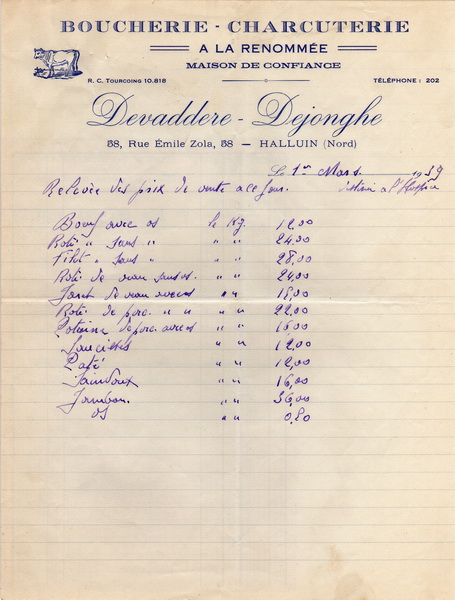 BOUCHERIE - CHARCUTERIE
A LA RENOMMÉE
MAISON DE CONFIANCE
R. C. TOURCOING 10.818
TÉLÉPHONE : 202
Devaddere - Dejonghe
58, Rue Émile Zola, 58 — HALLUIN (Nord)
Le 1er Mars 1939
Relevée des prix de vente a ce jour. destinée a l'Hospice
Bœuf avec os le Kg. 12,00
Roti " sans " " " 24,00
Filet " sans " " " 28,00
Roti de veau sans os. " " 24,00
de veau avec os " " 18,00
Roti de porc " " " " 22,00
Poitrine de porc avec os " " 16,00
Saucisses " " 12,00
Paté " " 12,00
Saindoux " " 16,00
Jambon " " 36,00
os " " 0,80